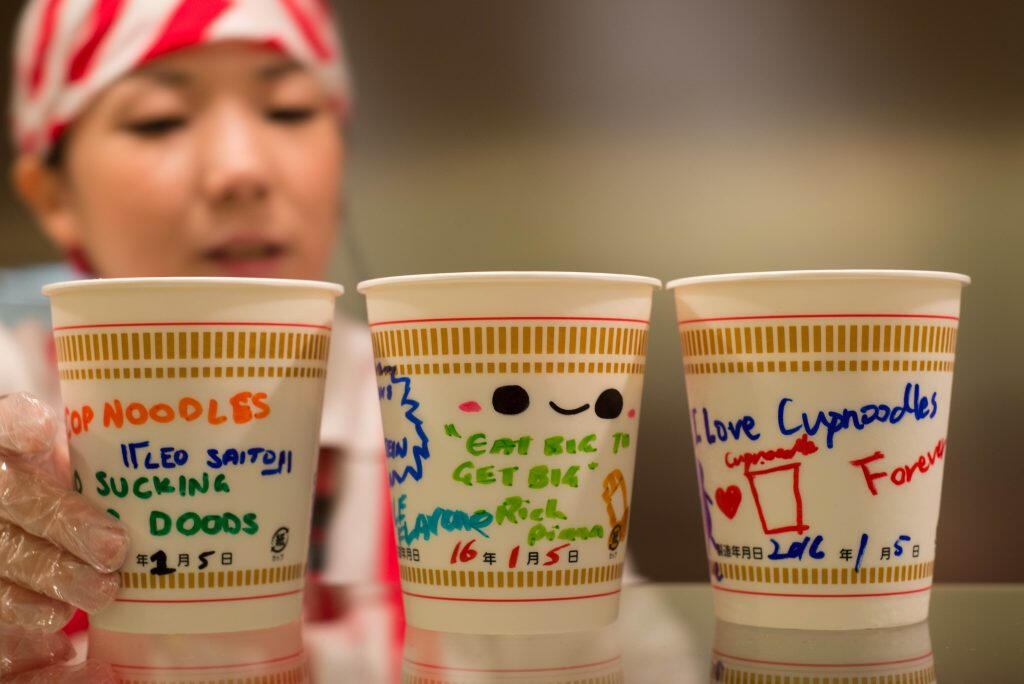 COP NOODLES
LEO SAITO
SUCKING
DOODS
年1月5日
"EAT BIG TO
GET BIG"
Rich
Piana
月日 16年1月5日
I Love Cupnoodles
Cupnoodle
Forever
製造年月日 2016年1月5日